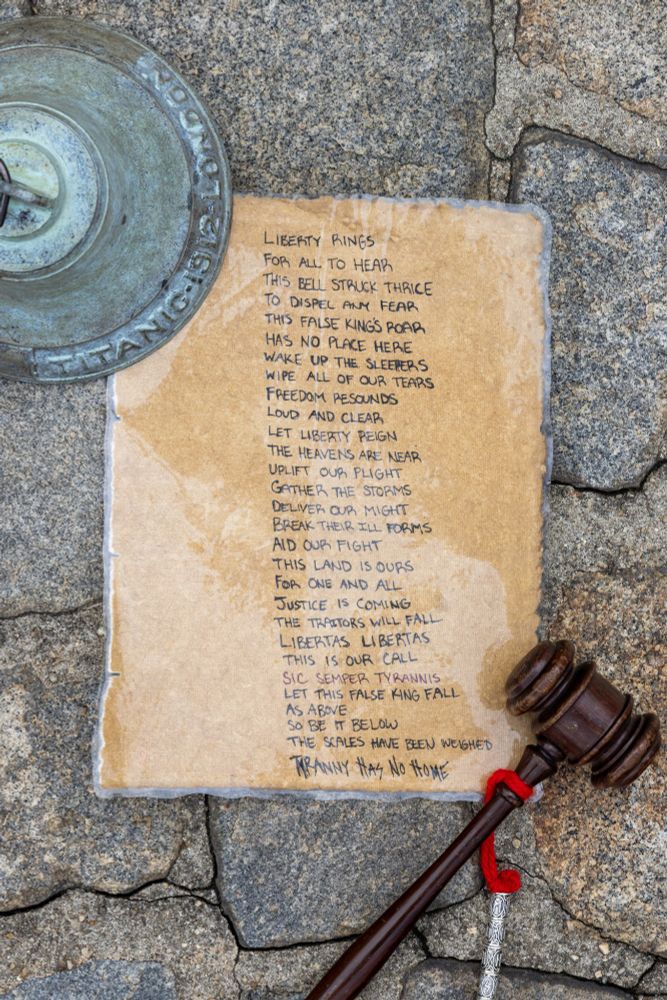 TITANIC·1912·LONDON
LIBERTY RINGS
FOR ALL TO HEAR
THIS BELL STRUCK THRICE
TO DISPEL ANY FEAR
THIS FALSE KING'S ROAR
HAS NO PLACE HERE
WAKE UP THE SLEEPERS
WIPE ALL OF OUR TEARS
FREEDOM RESOUNDS
LOUD AND CLEAR
LET LIBERTY REIGN
THE HEAVENS ARE NEAR
UPLIFT OUR PLIGHT
GATHER THE STORMS
DELIVER OUR MIGHT
BREAK THEIR ILL FORMS
AID OUR FIGHT
THIS LAND IS OURS
FOR ONE AND ALL
JUSTICE IS COMING
THE TRAITORS WILL FALL
LIBERTAS LIBERTAS
THIS IS OUR CALL
SIC SEMPER TYRANNIS
LET THIS FALSE KING FALL
AS ABOVE
SO BE IT BELOW
THE SCALES HAVE BEEN WEIGHED
TYRANNY HAS NO HOME